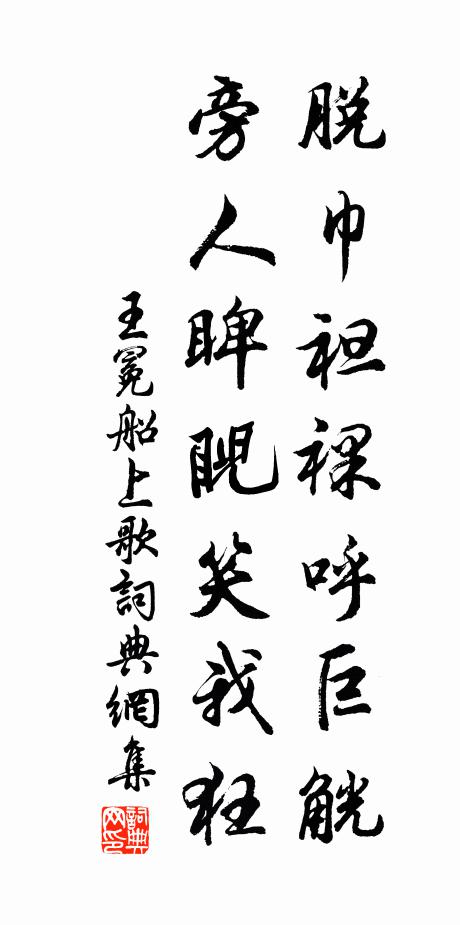 脫巾袒裸呼巨觥
旁人睥睨笑我狂
王冕船上歌詞典網集
詞典
网印